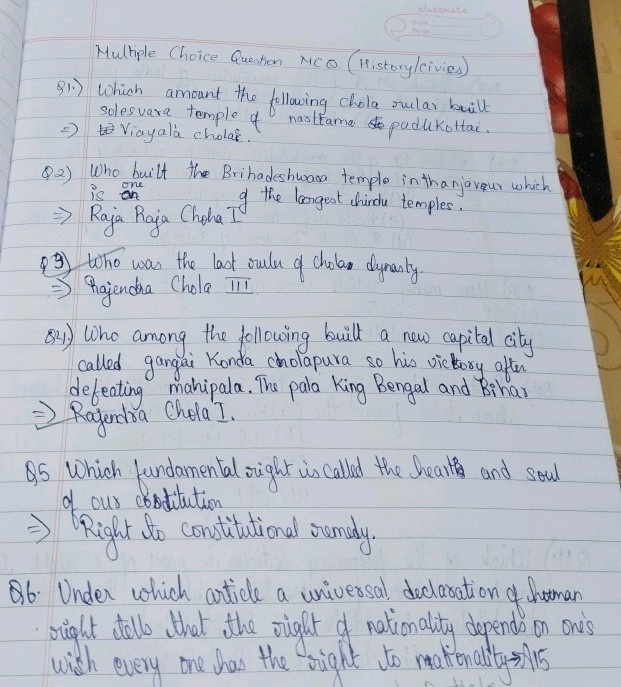 classmate
Date
Page
Multiple Choice Question MCQ. (History/civics)
Q1.) Which amount the following chola rular built
solesvara temple of nasttama padukottai.
=> Viayala cholai.
Q2) Who built the Brihadeshwara temple in thanjavour which
is one of the longest hindu temples.
=> Raja Raja Chola I
Q3) Who was the last ruler of chola dynasty.
=> Rajendra Chola III
Q4.) Who among the following built a new capital city
called gangai Konda cholapura so his victory after
defeating mahipala. The pala King Bengal and Bihar
=> Rajendra Chola I.
Q5 Which fundamental right is called the heart and soul
of our constitution
=> Right to constitutional remedy.
Q6. Under which article a universal declaration of human
right tells that the right of nationality depends on one's
wish every one has the right to nationality→A15